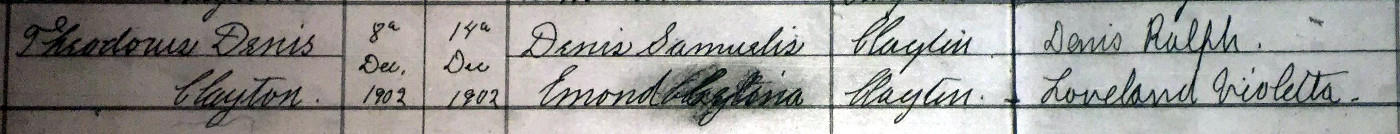 Theodorus Denis 8a 14a Denis Samuelis Claytin Denis Ralph.
Dec. Dec
Clayton. 1902 1902 Emond Claytonia Claytin. Loveland Violetta.